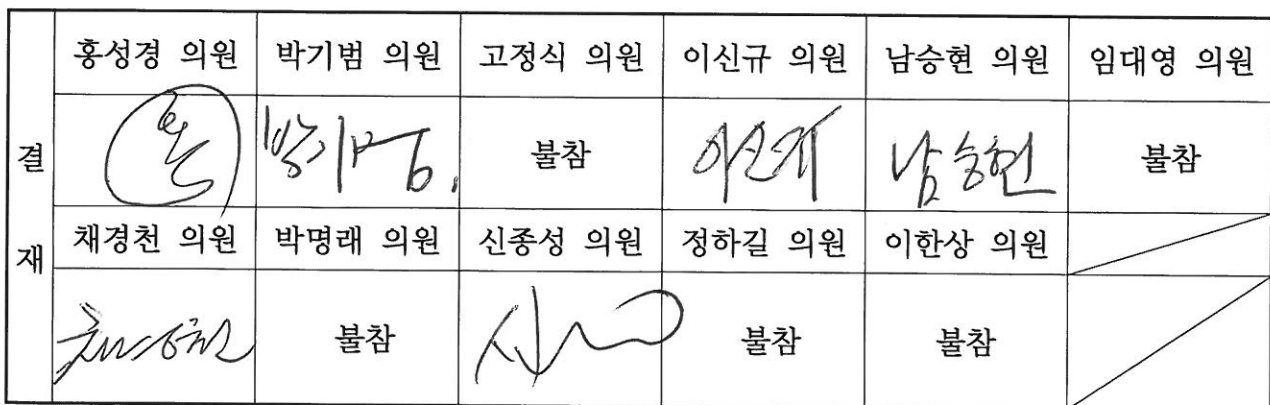 결재
홍성경 의원 박기범 의원 고정식 의원 이신규 의원 남승현 의원 임대영 의원
홍 박기범. 불참 이신규 남승현 불참
채경천 의원 박명래 의원 신종성 의원 정하길 의원 이한상 의원
채경천 불참 불참 불참